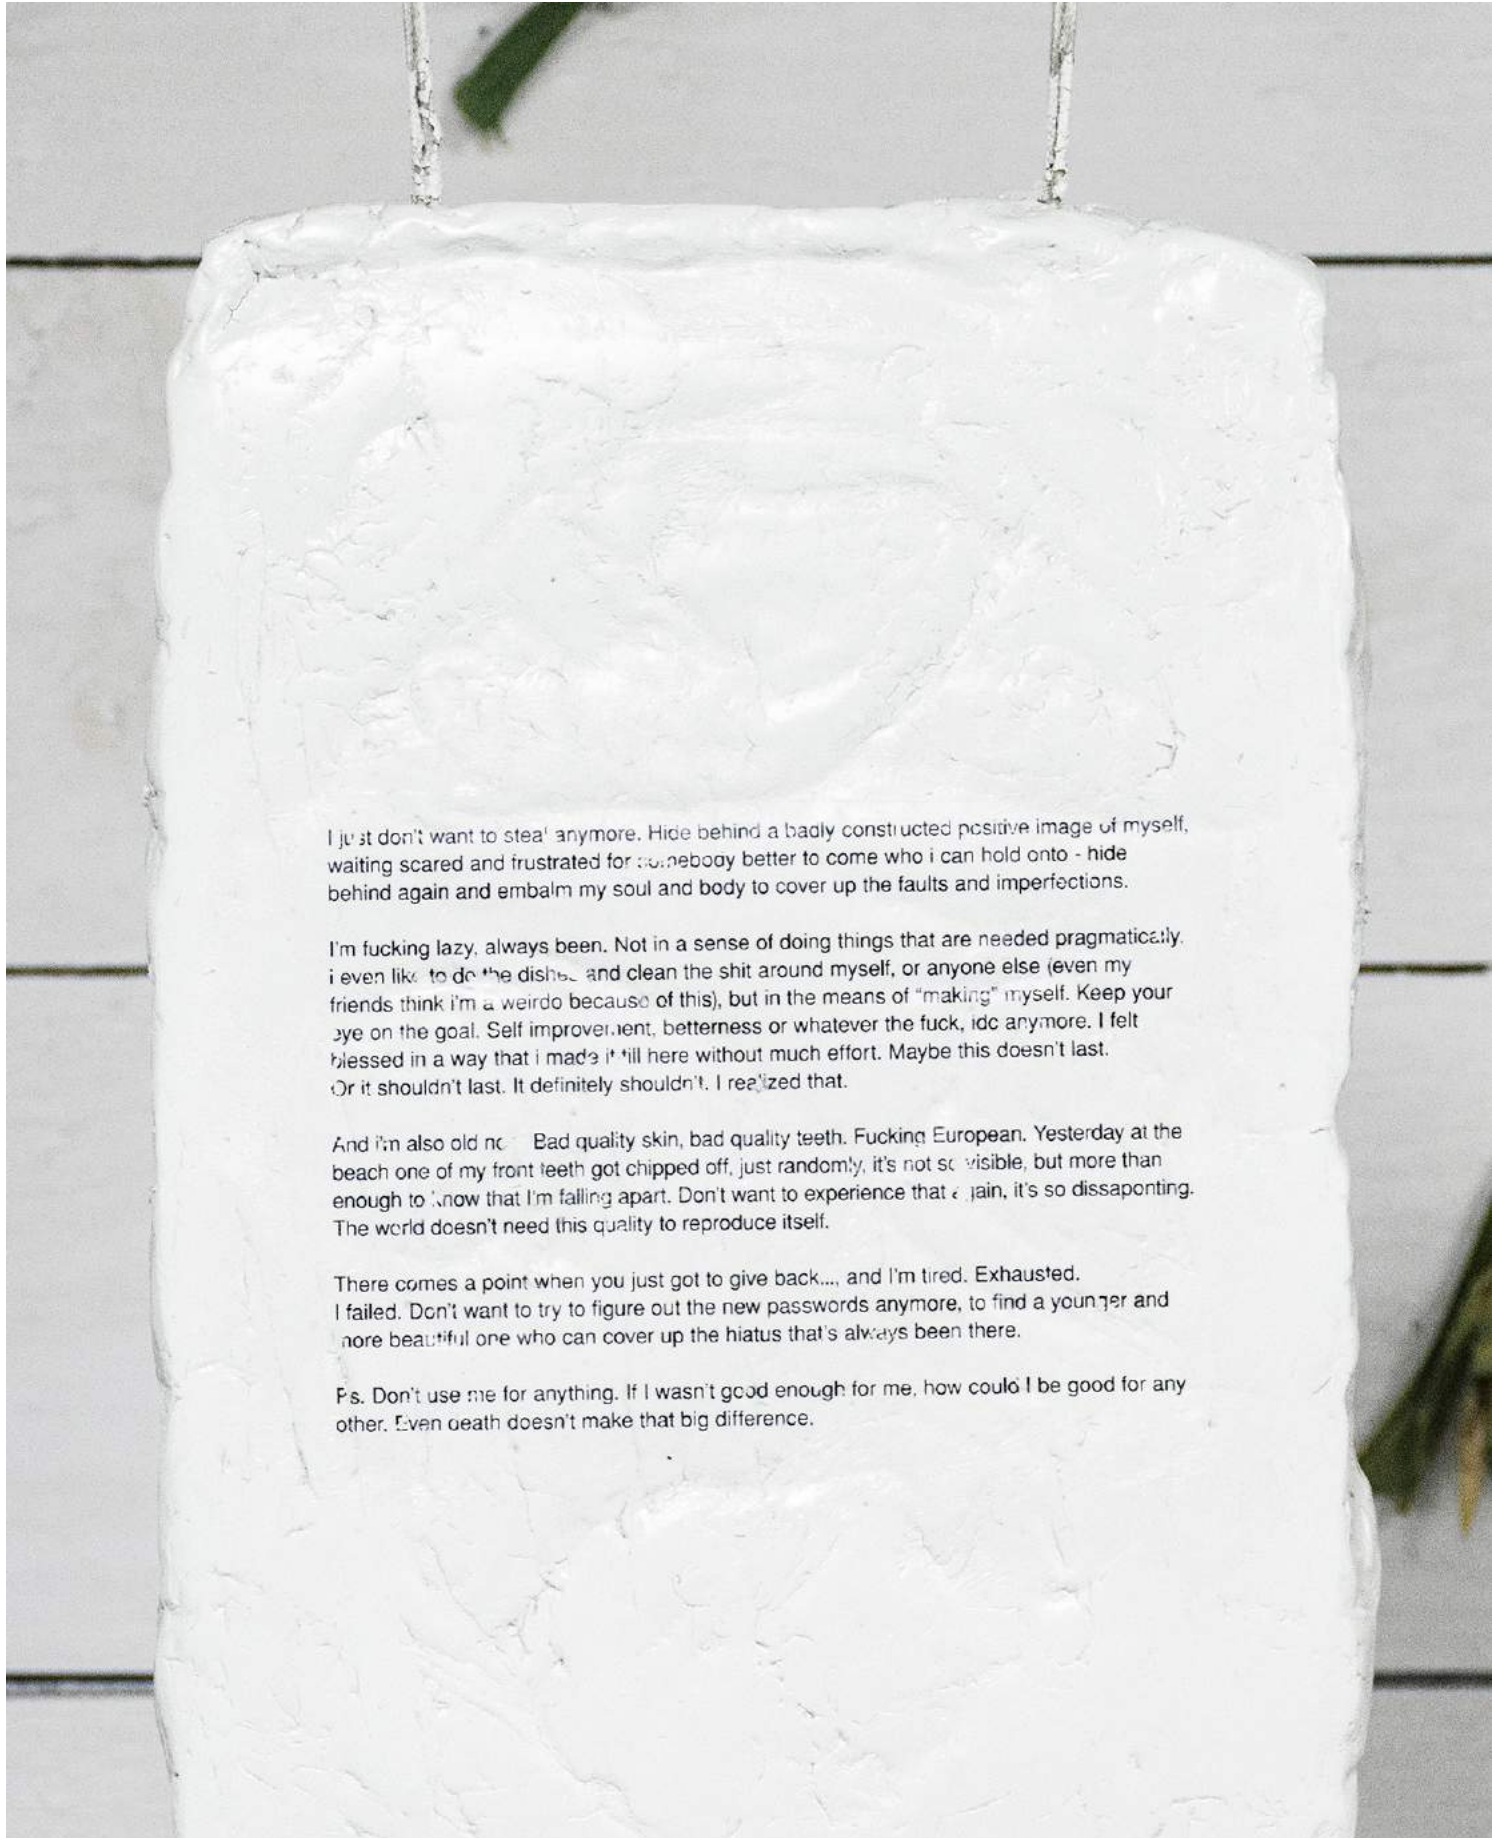 I just don't want to steal anymore. Hide behind a badly constructed positive image of myself,
waiting scared and frustrated for somebody better to come who i can hold onto - hide
behind again and embalm my soul and body to cover up the faults and imperfections.
I'm fucking lazy, always been. Not in a sense of doing things that are needed pragmatically.
i even like to do the dishes and clean the shit around myself, or anyone else (even my
friends think i'm a weirdo because of this), but in the means of “making” myself. Keep your
eye on the goal. Self improvement, betterness or whatever the fuck, idc anymore. I felt
blessed in a way that i made it till here without much effort. Maybe this doesn't last.
Or it shouldn't last. It definitely shouldn't. I realized that.
And i'm also old Bad quality skin, bad quality teeth. Fucking European. Yesterday at the
beach one of my front teeth got chipped off, just randomly, it's not so visible, but more than
enough to know that I'm falling apart. Don't want to experience that again, it's so dissaponting.
The world doesn't need this quality to reproduce itself.
There comes a point when you just got to give back..., and I'm tired. Exhausted.
I failed. Don't want to try to figure out the new passwords anymore, to find a younger and
more beautiful one who can cover up the hiatus that's always been there.
Ps. Don't use me for anything. If I wasn't good enough for me, how could I be good for any
other. Even death doesn't make that big difference.